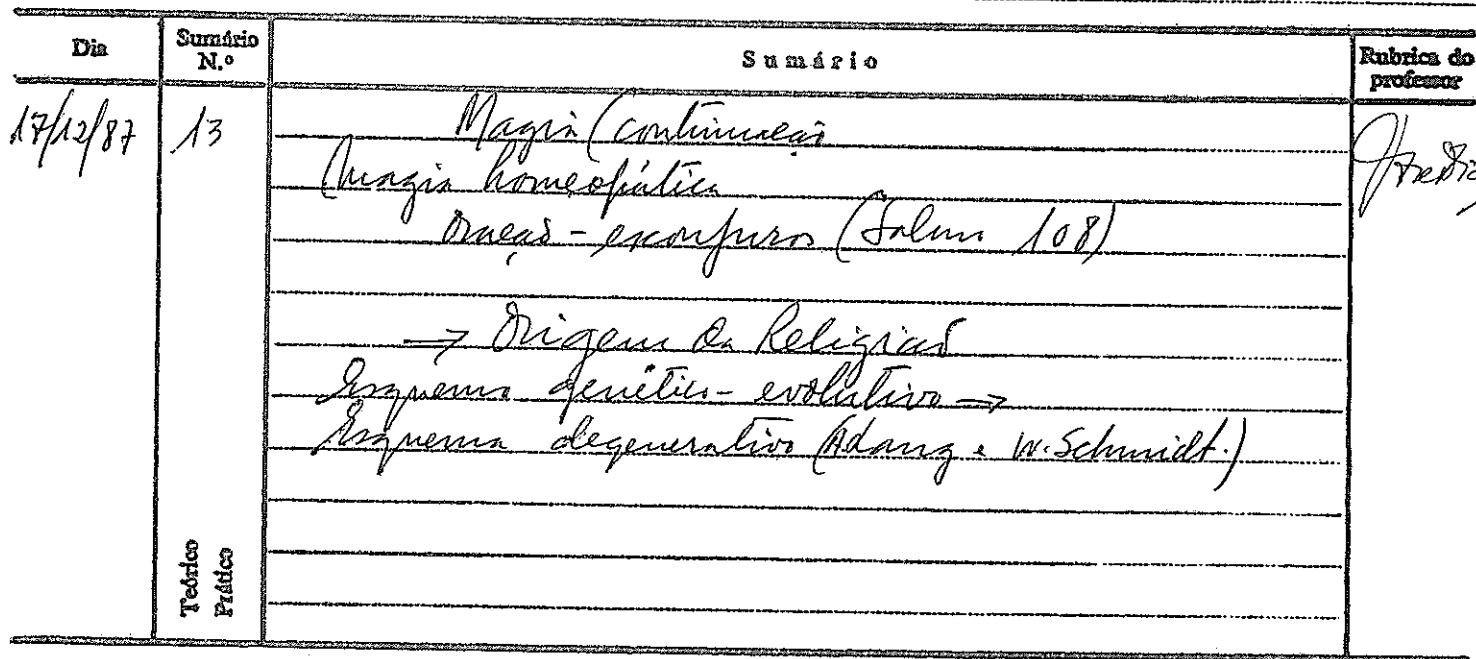 Dia Sumário N.º Sumário Rubrica do professor
17/12/87 13 Magia (continuação
(magia homeopática
oração - esconjuros (Salmo 108)
→ Origem da Religião
Esquema genético-evolutivo →
Esquema degenerativo (A. Lang e W. Schmidt.)
Teórico
Prático